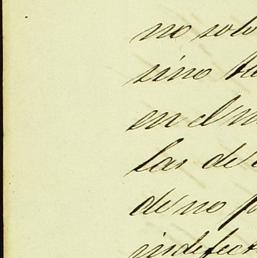 no solo
sino
en el
las de
de no p
indefect